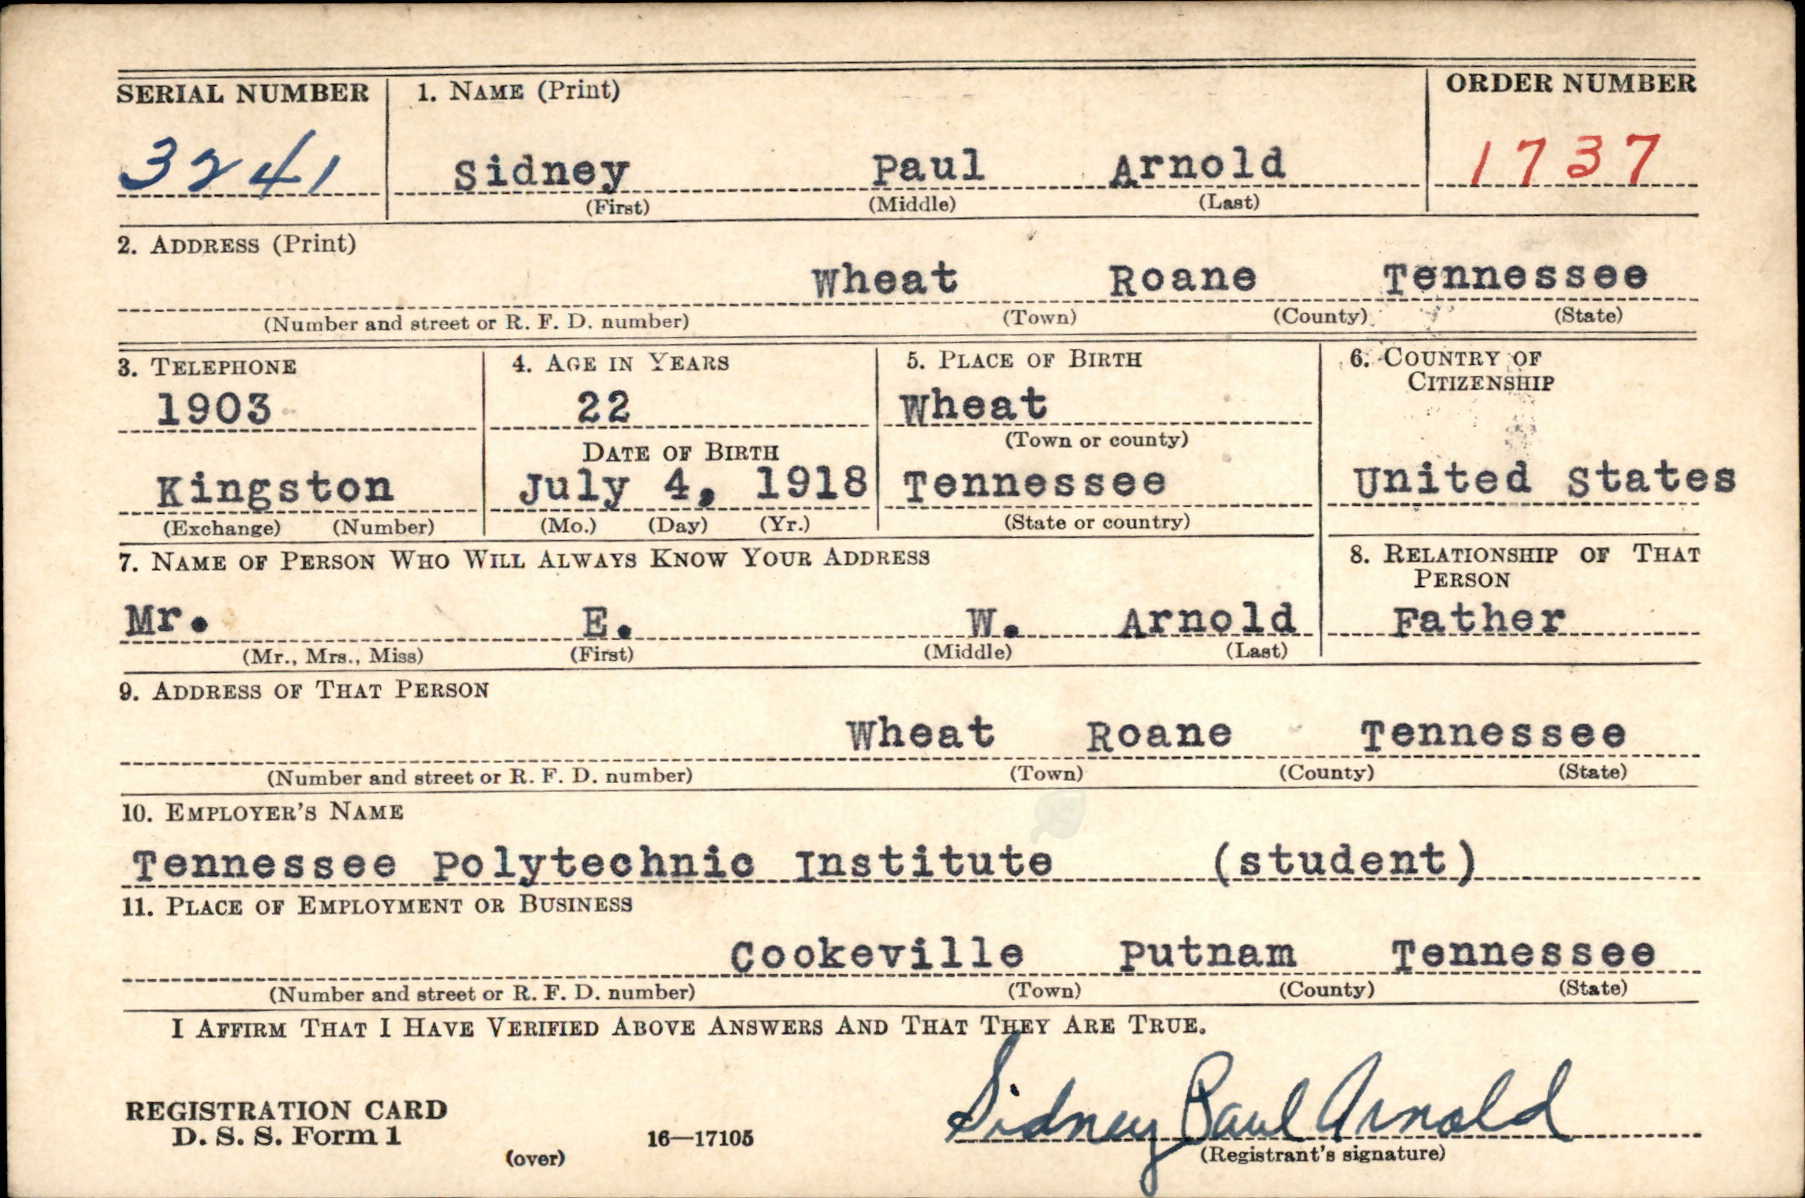 SERIAL NUMBER 1. NAME (Print) ORDER NUMBER
3241 Sidney Paul Arnold 1737
(First) (Middle) (Last)
2. ADDRESS (Print)
Wheat Roane Tennessee
(Number and street or R. F. D. number) (Town) (County) (State)
3. TELEPHONE 4. AGE IN YEARS 5. PLACE OF BIRTH 6. COUNTRY OF
CITIZENSHIP
1903 22 Wheat
(Town or county)
DATE OF BIRTH
Kingston July 4, 1918 Tennessee United States
(Exchange) (Number) (Mo.) (Day) (Yr.) (State or country)
7. NAME OF PERSON WHO WILL ALWAYS KNOW YOUR ADDRESS 8. RELATIONSHIP OF THAT
PERSON
Mr. E. W. Arnold Father
(Mr., Mrs., Miss) (First) (Middle) (Last)
9. ADDRESS OF THAT PERSON
Wheat Roane Tennessee
(Number and street or R. F. D. number) (Town) (County) (State)
10. EMPLOYER'S NAME
Tennessee Polytechnic Institute (student)
11. PLACE OF EMPLOYMENT OR BUSINESS
Cookeville Putnam Tennessee
(Number and street or R. F. D. number) (Town) (County) (State)
I AFFIRM THAT I HAVE VERIFIED ABOVE ANSWERS AND THAT THEY ARE TRUE.
Sidney Paul Arnold
REGISTRATION CARD
D. S. S. Form 1 16—17105
(over) (Registrant's signature)